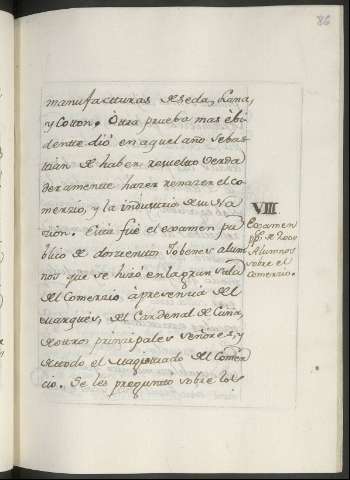 86
manufacturas de seda, Lana,
y Coton. Otra prueba mas ebi
dente dió en aquel año Sebas
tian de haber resuelto verda
deramente hazer renazer el co
merzio, y la industria de su Na
zion. Esta fué el examen pu
blico de doszientos Jobenes alum
nos que se hizó en la gran sala
del Comerzio à presenzia del
marques, del Cardenal de Cuña,
de otros prinzipales señores, y
de todo el Magistrado del Comer
cio. Se les preguntó sobre los
VIII
Examen
pp.co de 200
Alumnos
sobre el
Comerzio.